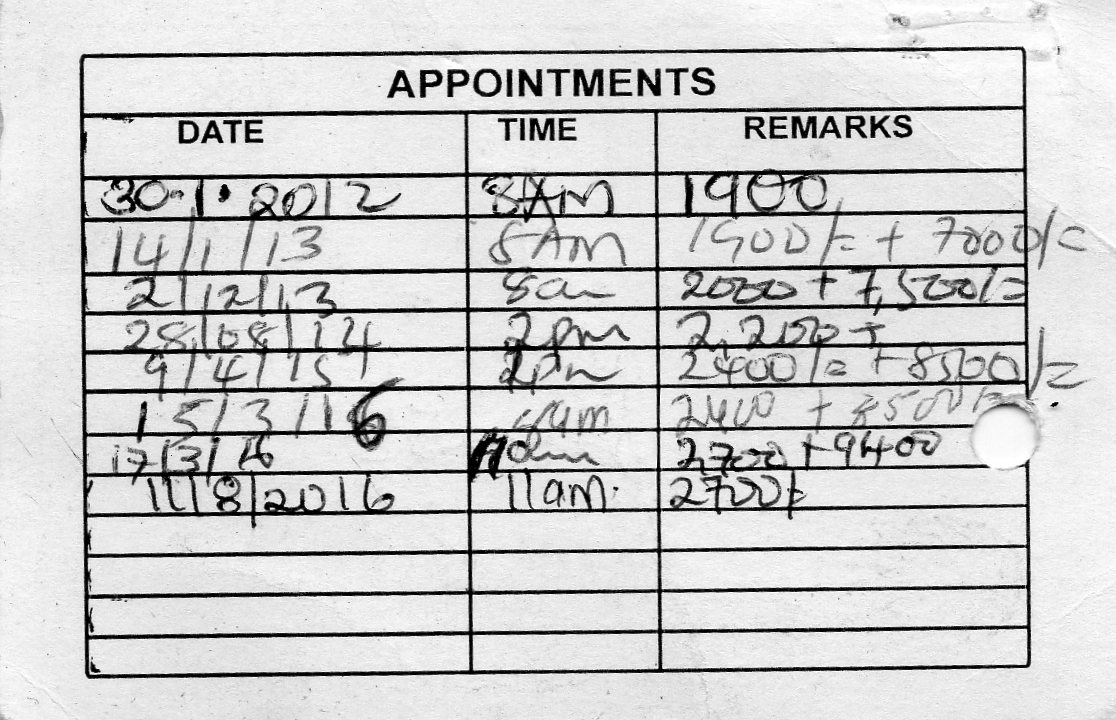 APPOINTMENTS
DATE TIME REMARKS
30.1.2012 8AM 1900
14/1/13 8AM 1900/= + 7000/=
2/12/13 8am 2000 + 7,500/=
28/08/14 2pm 2,200 +
9/4/15 2pm 2400/= + 8500/=
15/3/16 am 2400 + 8500/=
17/3/16 10am 2,700 + 9400
11/8/2016 11am. 2700/=